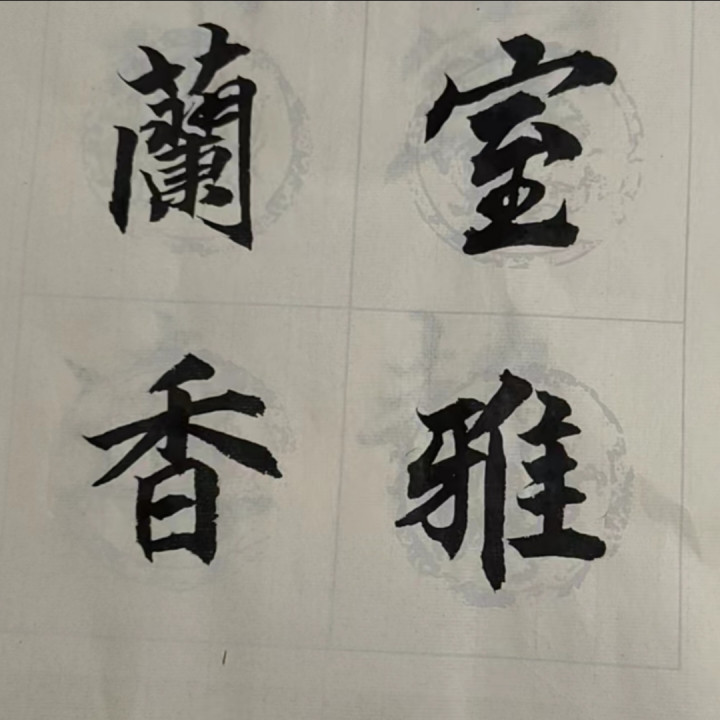 室雅
蘭香